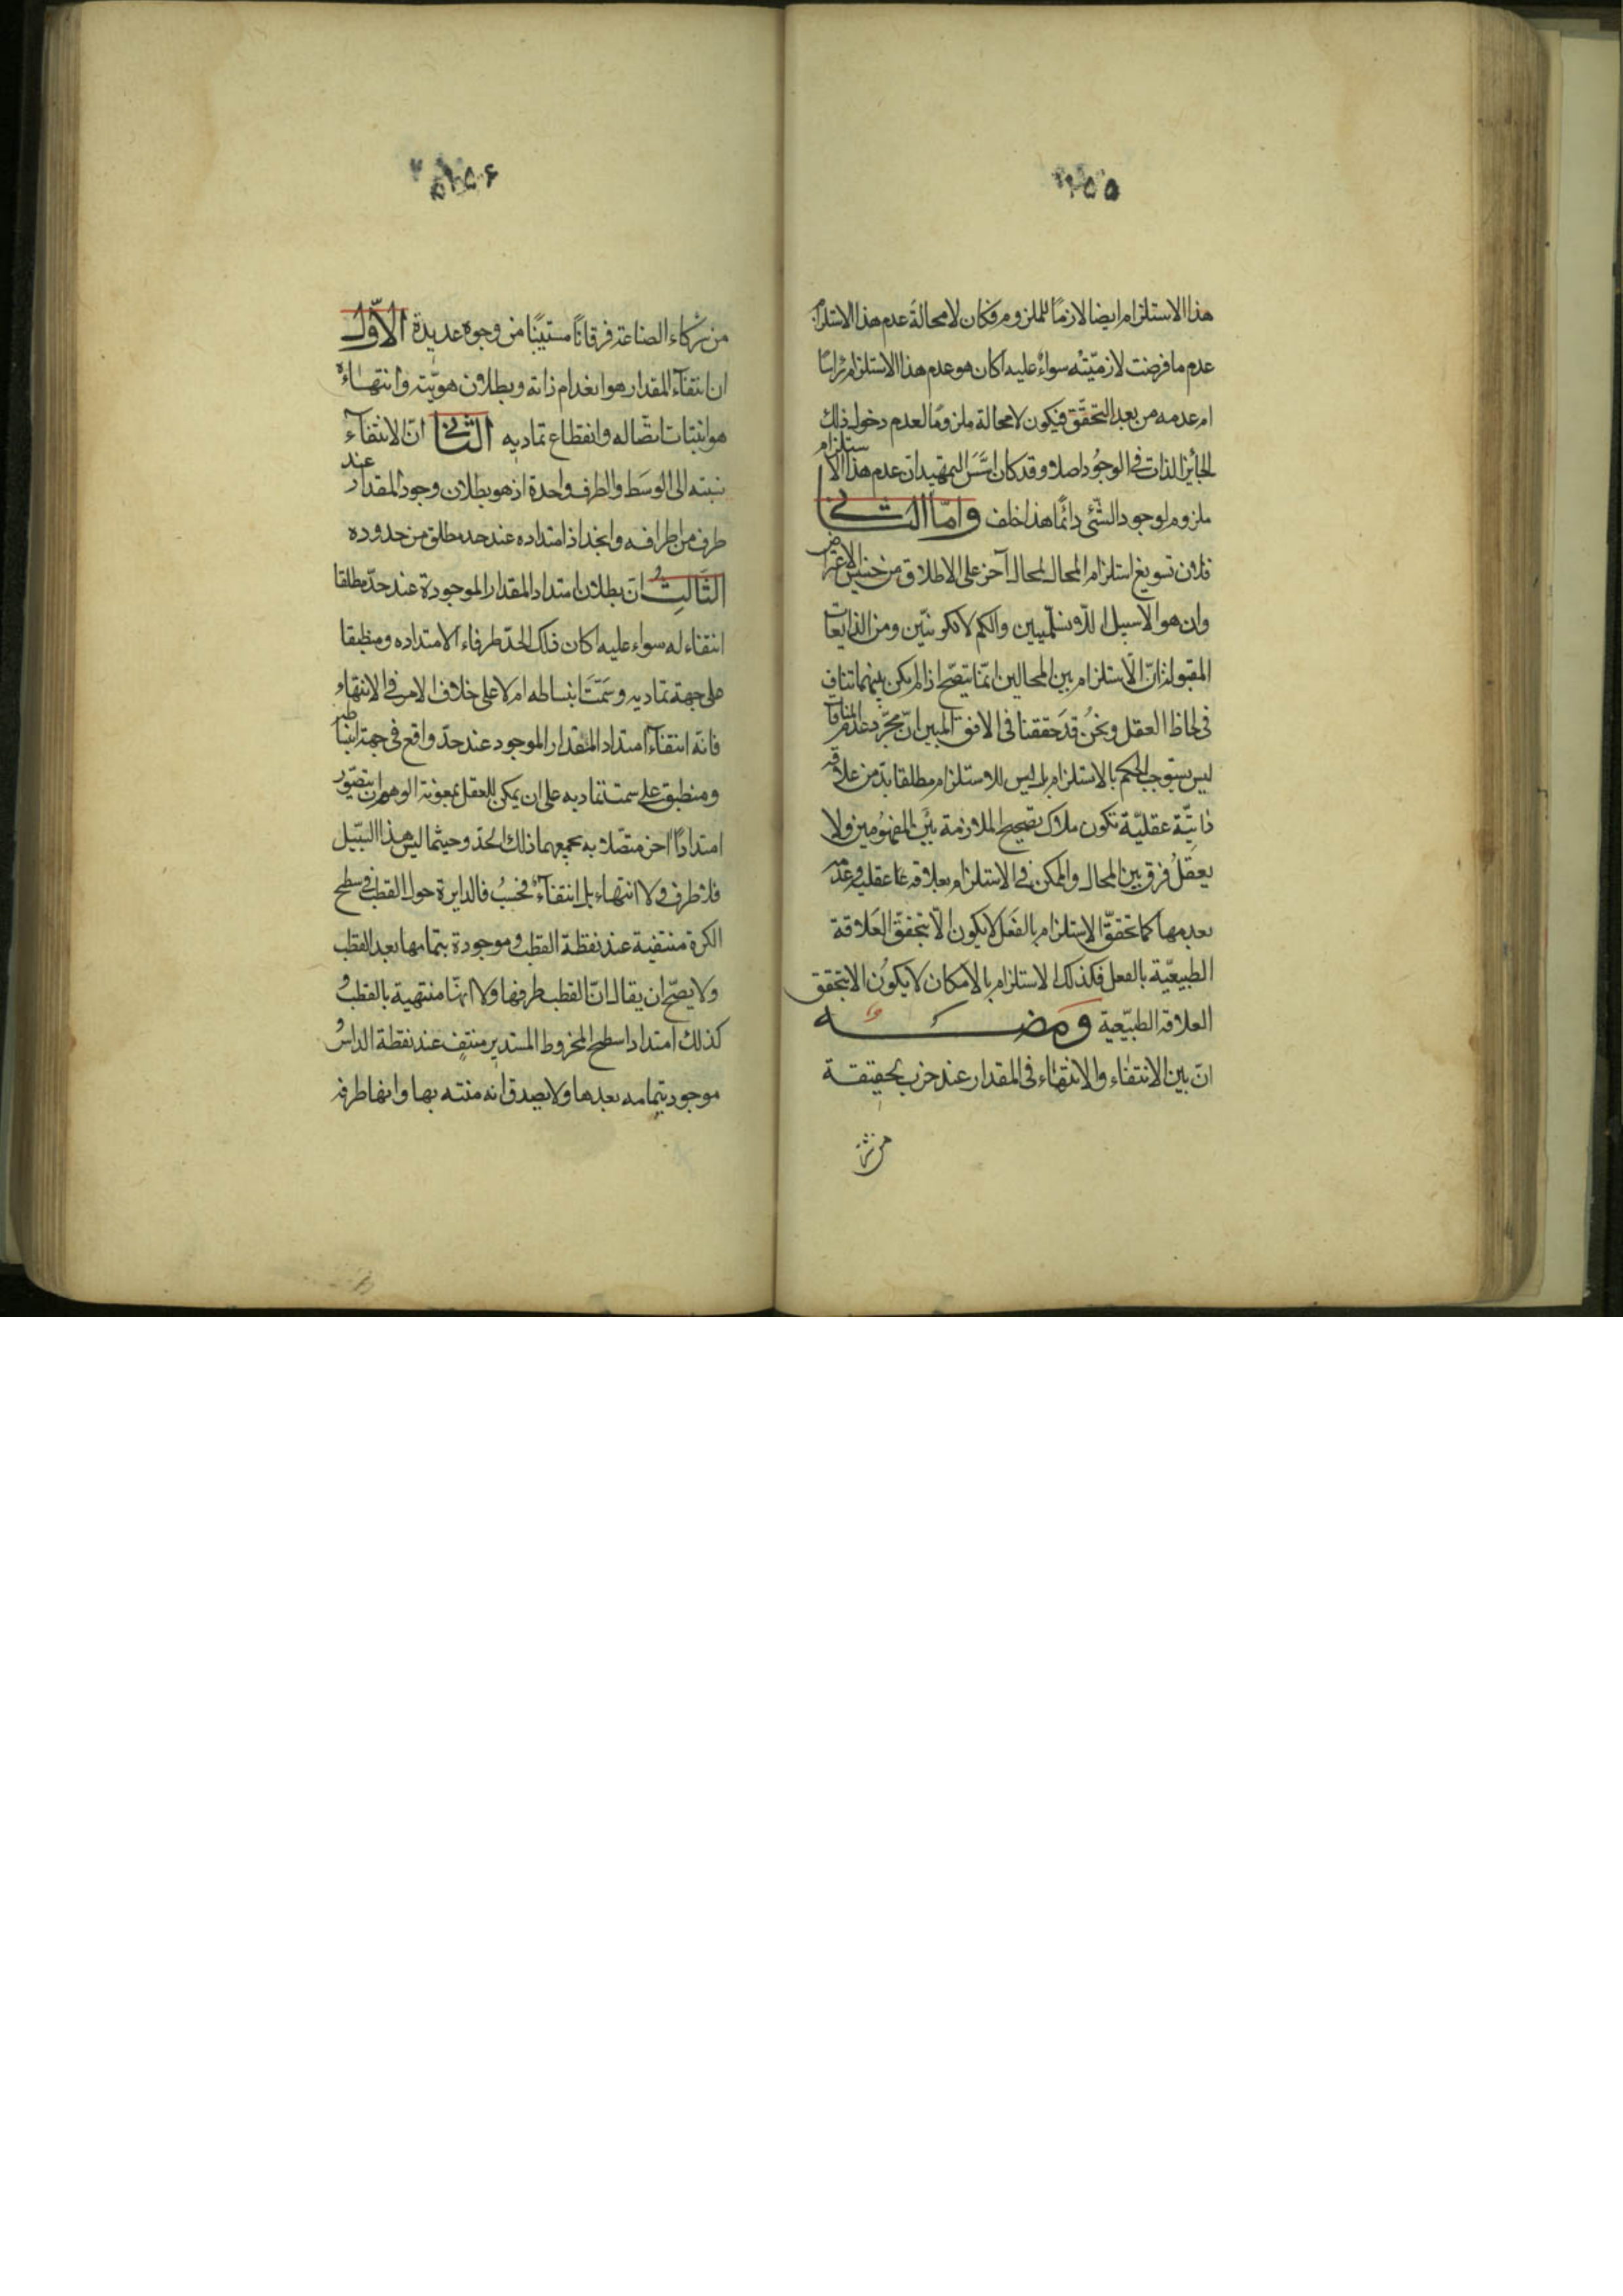 ٢٥٥
هذا الاستلزام ايضا لازمًا للملزوم فكان لا محالة عدم هذا الاستلزام
عدم ما فرضت لازميّته سواء عليه اكان هو عدم هذا الاستلزام راسًا
ام عدمه من بعد التحقّق فيكون لا محالة ملزومًا لعدم دخول ذلك
الجائز الذات في الوجود اصلا وقد كان اسّس التمهيد ان عدم هذا الاستلزام
ملزوم لوجود الشئ دائمًا هذا خلف وامّا الثانى
فلان تسويغ استلزام المحال لمحال آخر على الاطلاق من
وان هو الا سبيل
المقبولة انّ الاستلزام بين المحالين انّما يتصحّ اذا لم يكن بينهما تناف
في لحاظ العقل ونحن قد حققنا فى الافق المبين انّ مجرّد عدم المنافات
ليس يستوجب الحكم بالاستلزام بل ليس للاستلزام مطلقا بدّ من علاقه
ذاتيّة عقليّة تكون ملاك تصحيح الملازمة بين المفهومين ولا
يعقل فرق بين المحال والممكن في الاستلزام بعلاقه ما عقليه وعدمه
بعدمها كما تحقّق الاستلزام بالفعل لا يكون الّا بتحقق العلاقة
الطبيعيّة بالفعل فكذلك الاستلزام بالامكان لا يكون الا بتحقق
العلاقه الطبيعية ومضه
انّ بين الانتفاء والانتهاء فى المقدار عند حزب الحقيقة
من شركاء
٢٥٦
من شركاء الصناعة فرقانًا مستبينًا من وجوه عديدة الاوّل
ان انتفاء المقدار هو انعدام ذاته وبطلان هويّته وانتهاءه
هو انبتات اتصّاله وانقطاع تماديه الثانى انّ الانتفاء
نسبته الى الوسط والطرف واحدة اذ هو بطلان وجود المقدار عند
طرف من اطرافه وانجذاذ امتداده عند حد مطلق من حدوده
الثالث ان بطلان امتداد المقدار الموجودة عند حدّ مطلقا
انتفاء له سواء عليه اكان ذلك الحدّ طرفاء لامتداده ومنطبقا
على جهة تماديه وسمت انبساطه ام لا على خلاف الامر في الانتهاء
فانه انتفاء امتداد المقدار الموجود عند حدّ واقع في جهة انبساطه
ومنطبق على سمت تماديه على ان يمكن للعقل بمعونة الوهم ان يتصوّر
امتدادًا اخر متصلا به يجمعهما ذلك الحدّ وحيثما ليس هذا السبيل
فلا طرف ولا انتهاء بل انتفاء فحسب فالدايرة حول القطب في سطح
الكرة منتفية عند نقطة القطب وموجودة بتمامها بعد القطب
ولا يصحّ ان يقال انّ القطب طرفها ولا انهّا منتهية بالقطب و
كذلك امتداد سطح المخروط المستدير منتف عند نقطة الراس و
موجود بتمامه بعدها ولا يصدق انه منته بها وانها طرفه